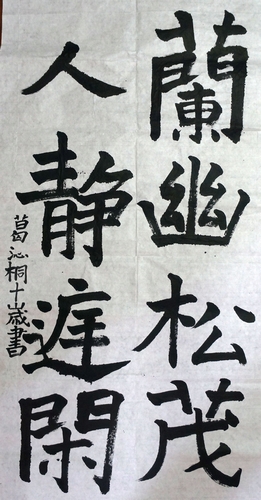 蘭幽松茂
人静遅閑
葛沁桐十歲書